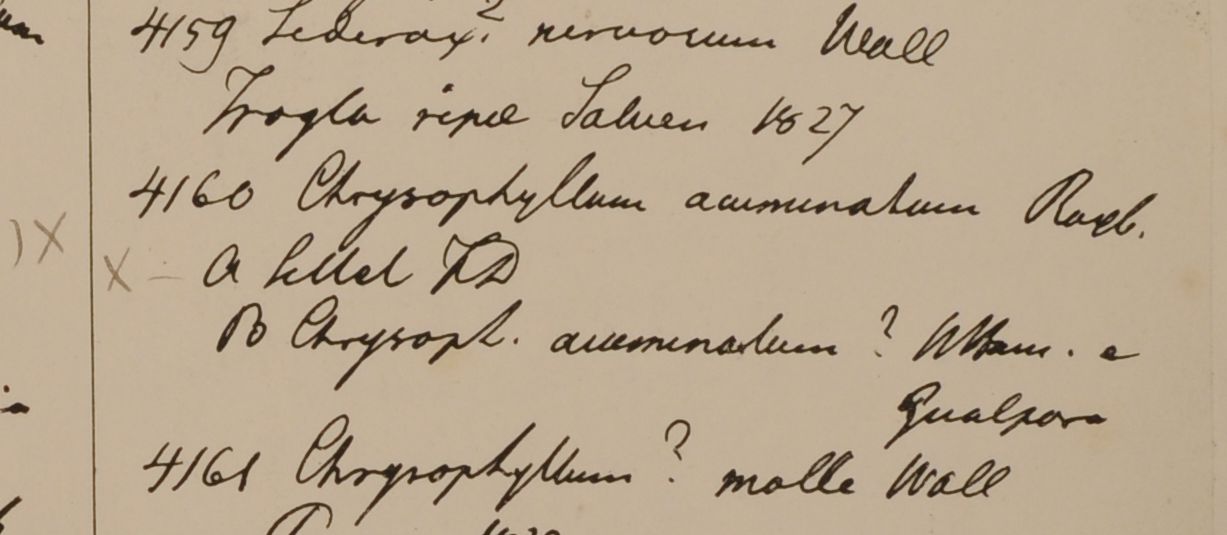 4159 Siderox.? nervosum Wall
Trogla ripae Saluen 1827
4160 Chrysophyllum acuminatum Roxb.
X - a Sillet FD
B Chrysoph. acuminatum? WHam. e
Gualpara
4161 Chrysophyllum? molle Wall